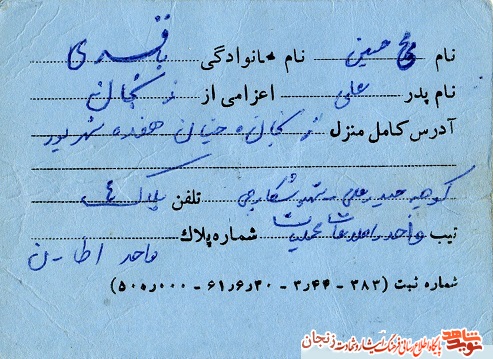 نام محمد حسین نام خانوادگی باقری
نام پدر علی اعزامی از زنجان
آدرس کامل منزل زنجان خیابان هفده شهریور
کوچه حیدرعلی شهید شکارچی تلفن پلاک ٤
تیپ واحد اطلاعات عملیات شماره پلاک
واحد
شماره ثبت (۳۸۳ – ۳٫۴۴ – ۶۱٫۶٫۳۰ – ۵۰۰٫۰۰۰)
نوید شاهد
پایگاه اطلاع رسانی فرهنگ ایثار و شهادت زنجان